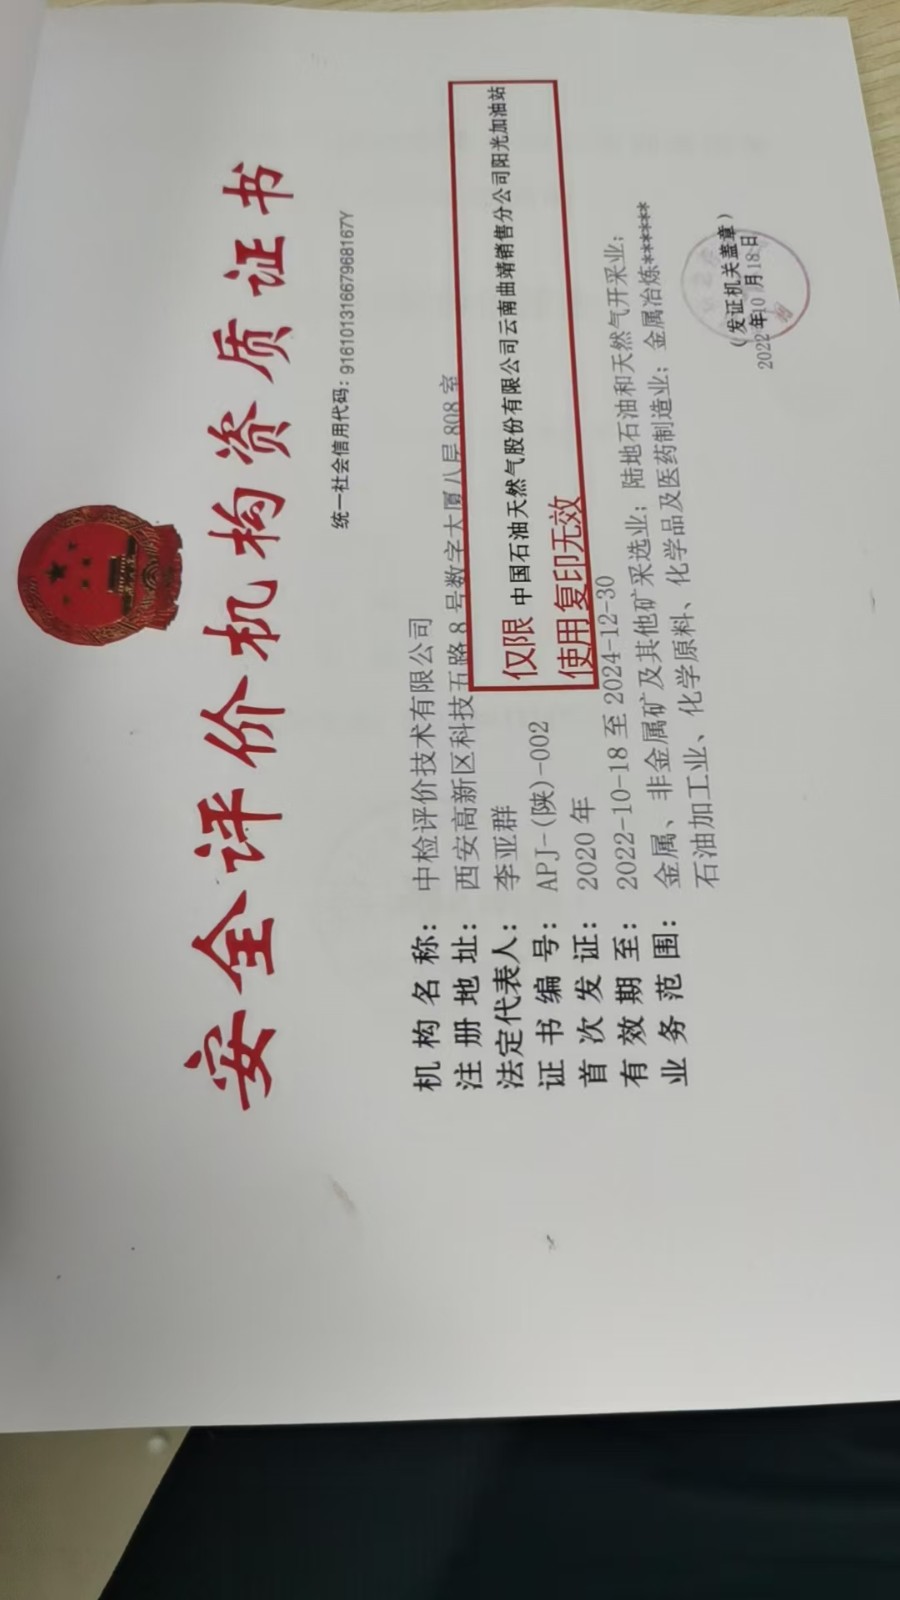 安全评价机构资质证书
统一社会信用代码：91610131667968167Y
机构名称：中检评价技术有限公司
注册地址：西安高新区科技五路8号数字大厦八层808室
法定代表人：李亚群
证书编号：APJ-(陕)-002
首次发证：2020年
有效期至：2022-10-18至2024-12-30
业务范围：金属、非金属矿及其他矿采选业；陆地石油和天然气开采业；
石油加工业、化学原料、化学品及医药制造业；金属冶炼******
仅限 中国石油天然气股份有限公司云南曲靖销售分公司阳光加油站
使用复印无效
（发证机关盖章）
2022年10月18日